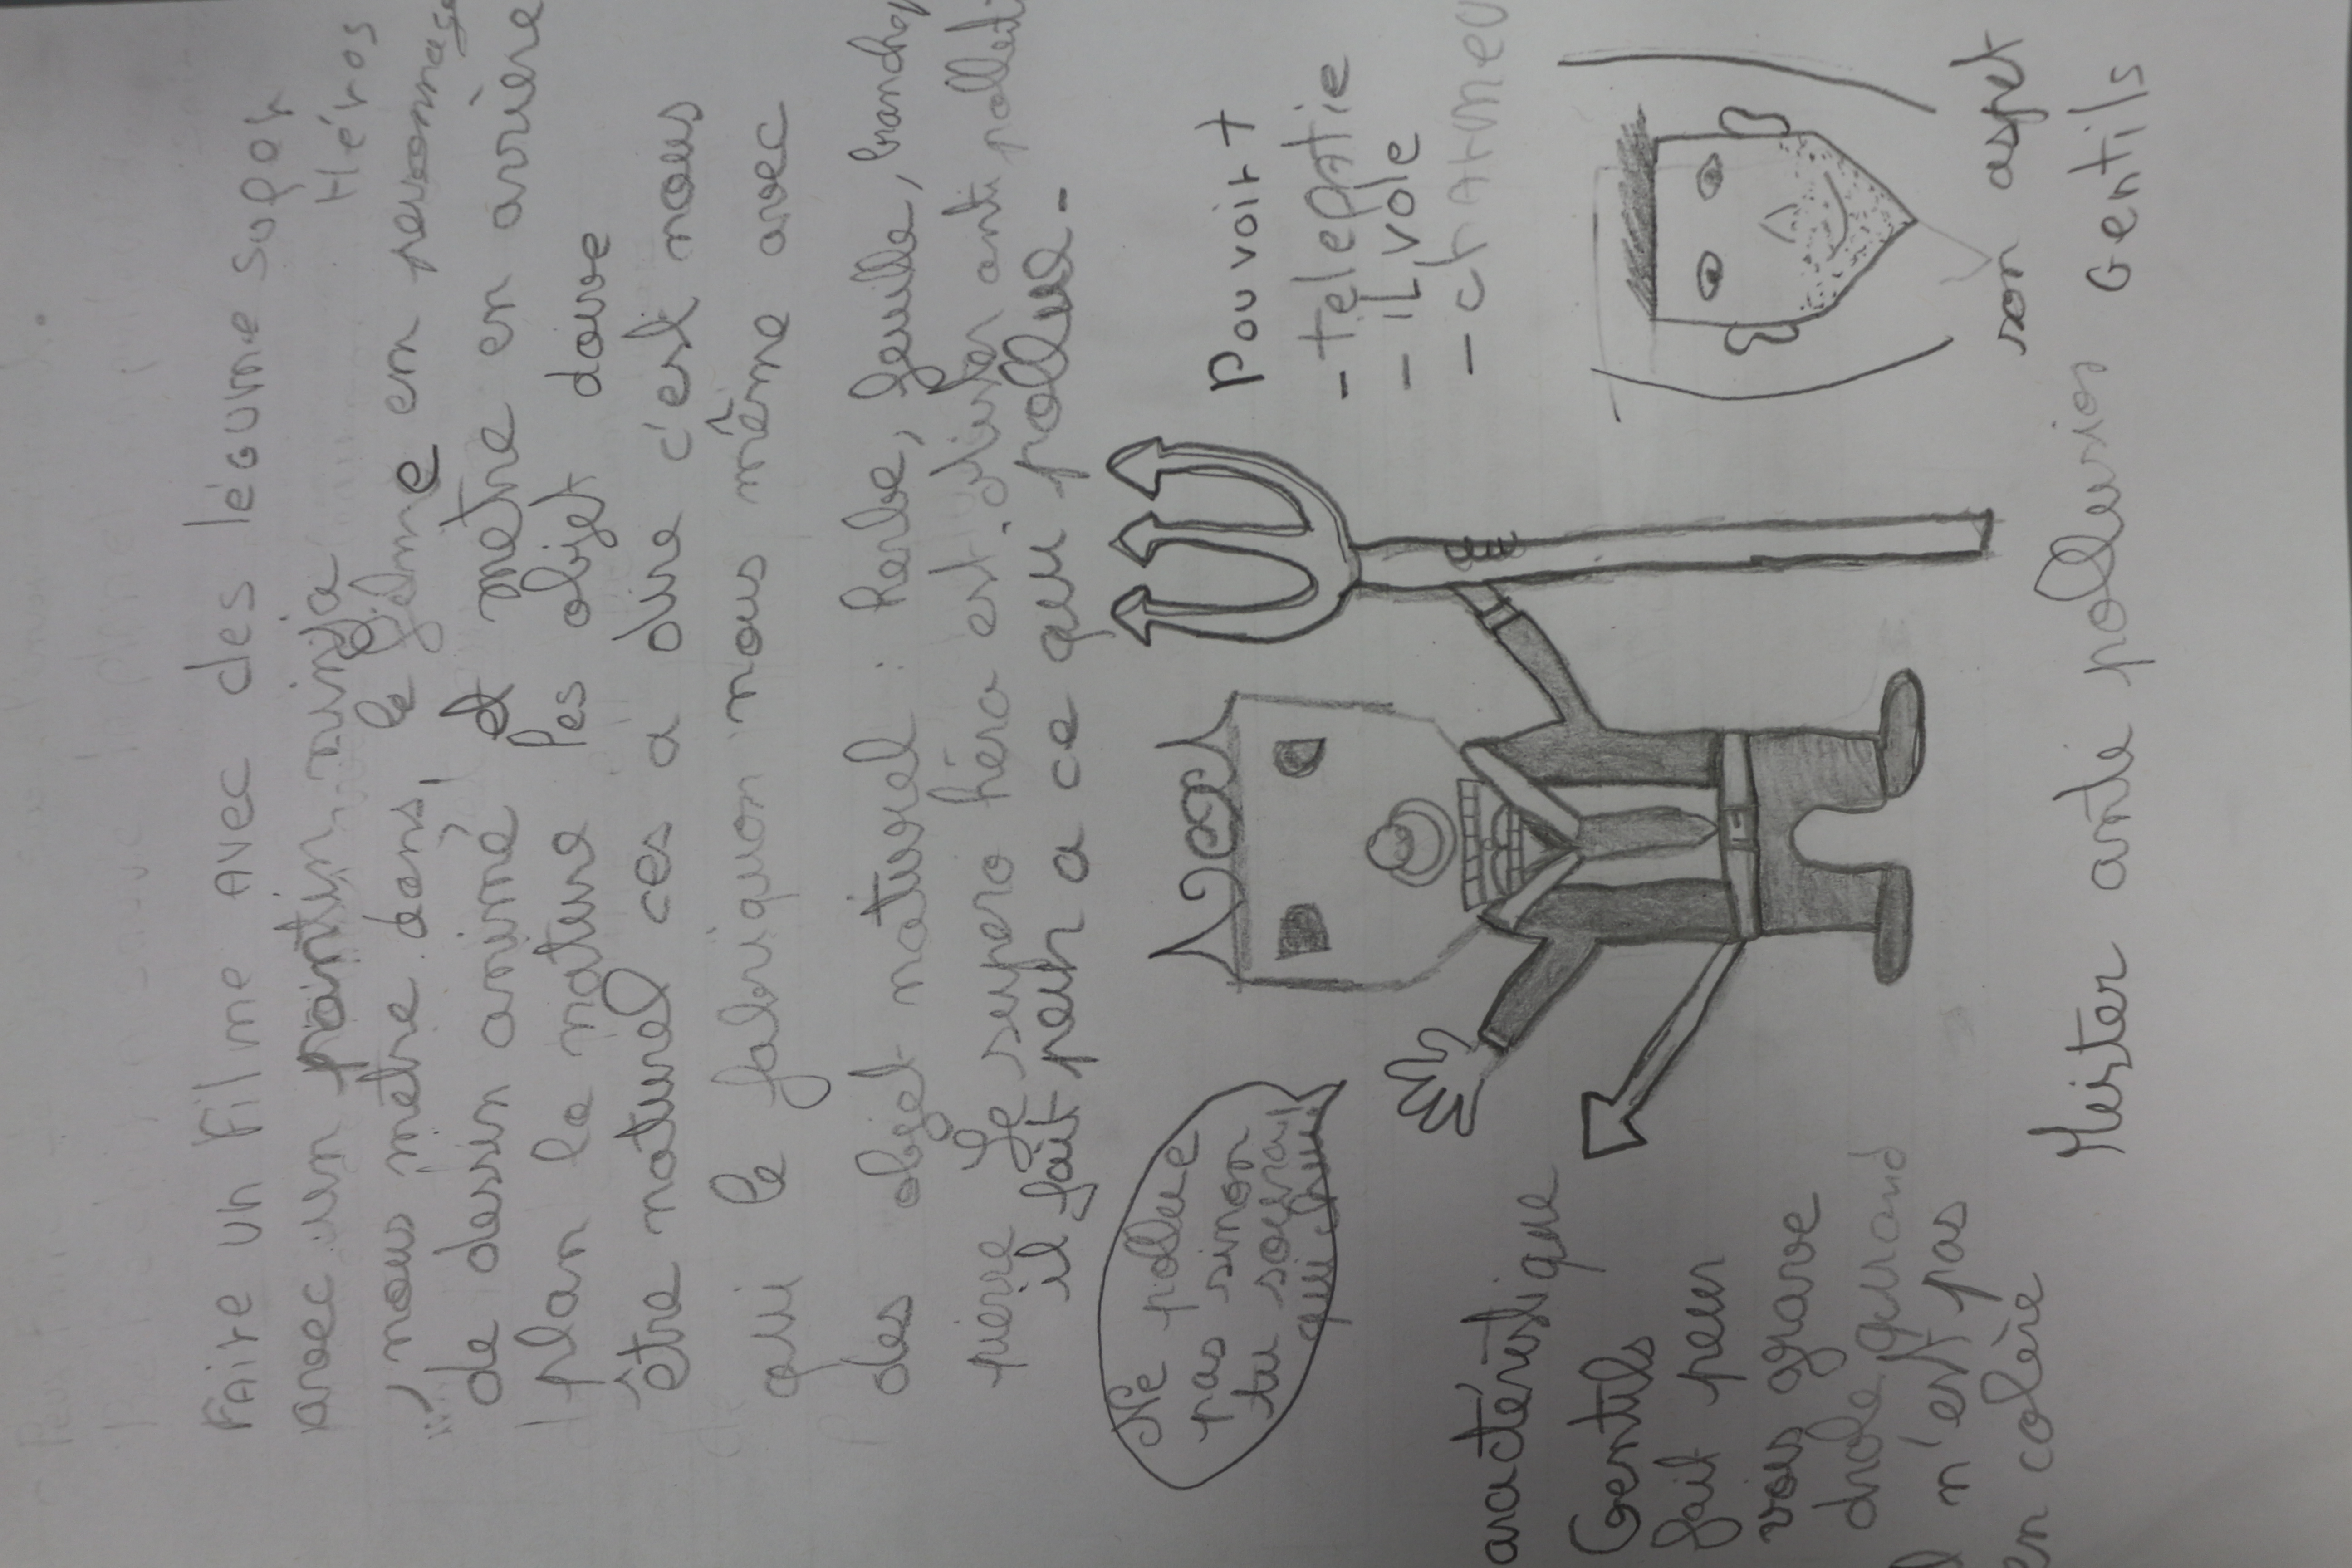 Faire un Filme avec des légume super
Héros
avec un pantin ninja
nous metre dans le filme en personnage
de dessin animé et metre en arrière
plan la nature Les objet dowe
être naturel ces a dire c'est nous
qui le fabriquon nous même avec
des objet naturel : herbe, feuille, branche,
pierre Le supero héro est anti pollution
il fait peur a ce qui pollue.
Ne pollue
pas sinon
tu
qui
Pouvoir +
- teleptie
- iL vole
- charmeu
aractéristique
Gentils
fait peur
vois grave
drole quand
l n'est pas
en colère
son aspet
Gentils
Meister ante pollusion